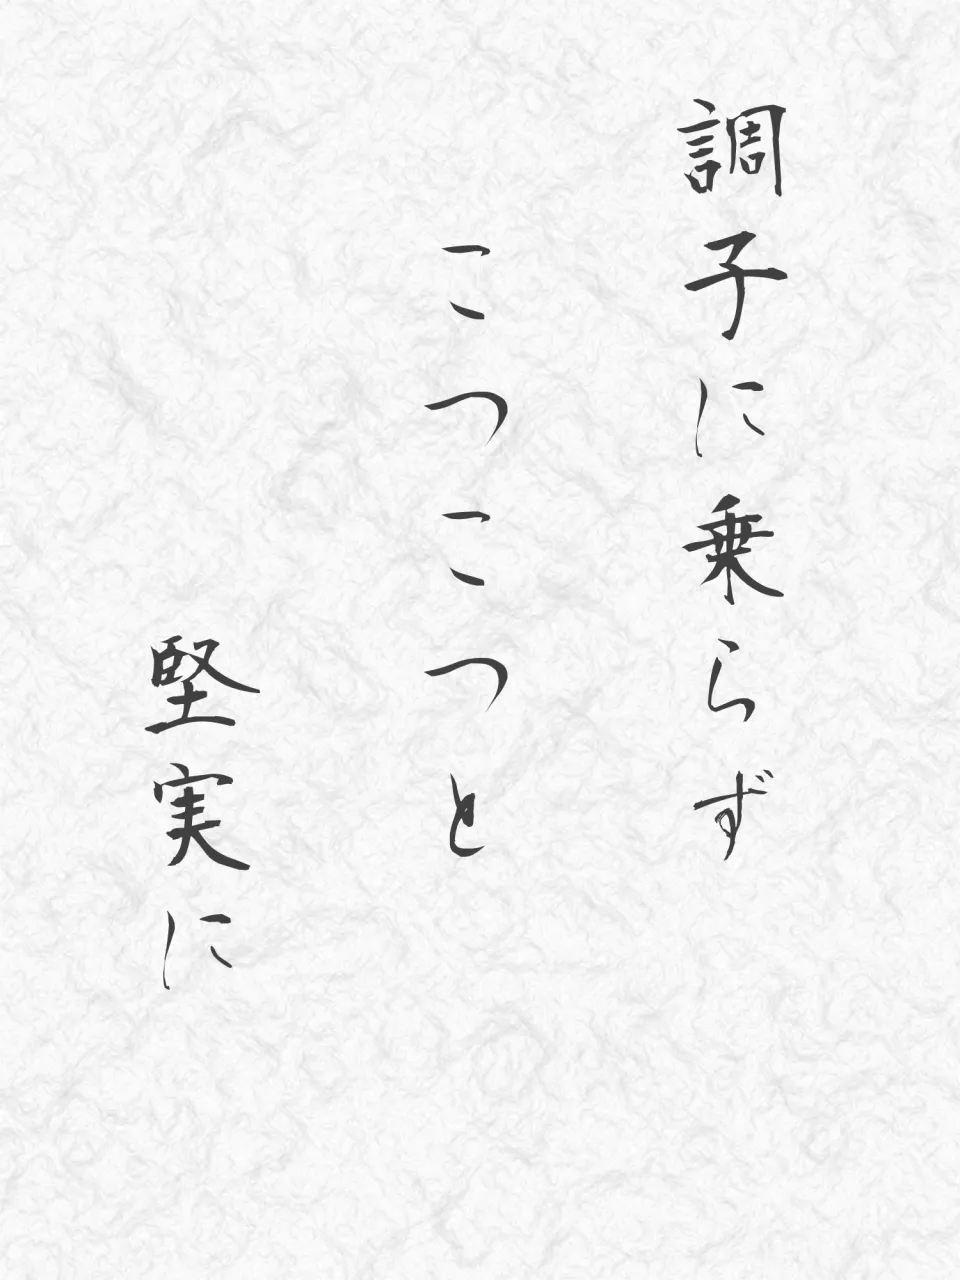 調子に乗らず
こつこつと
堅実に